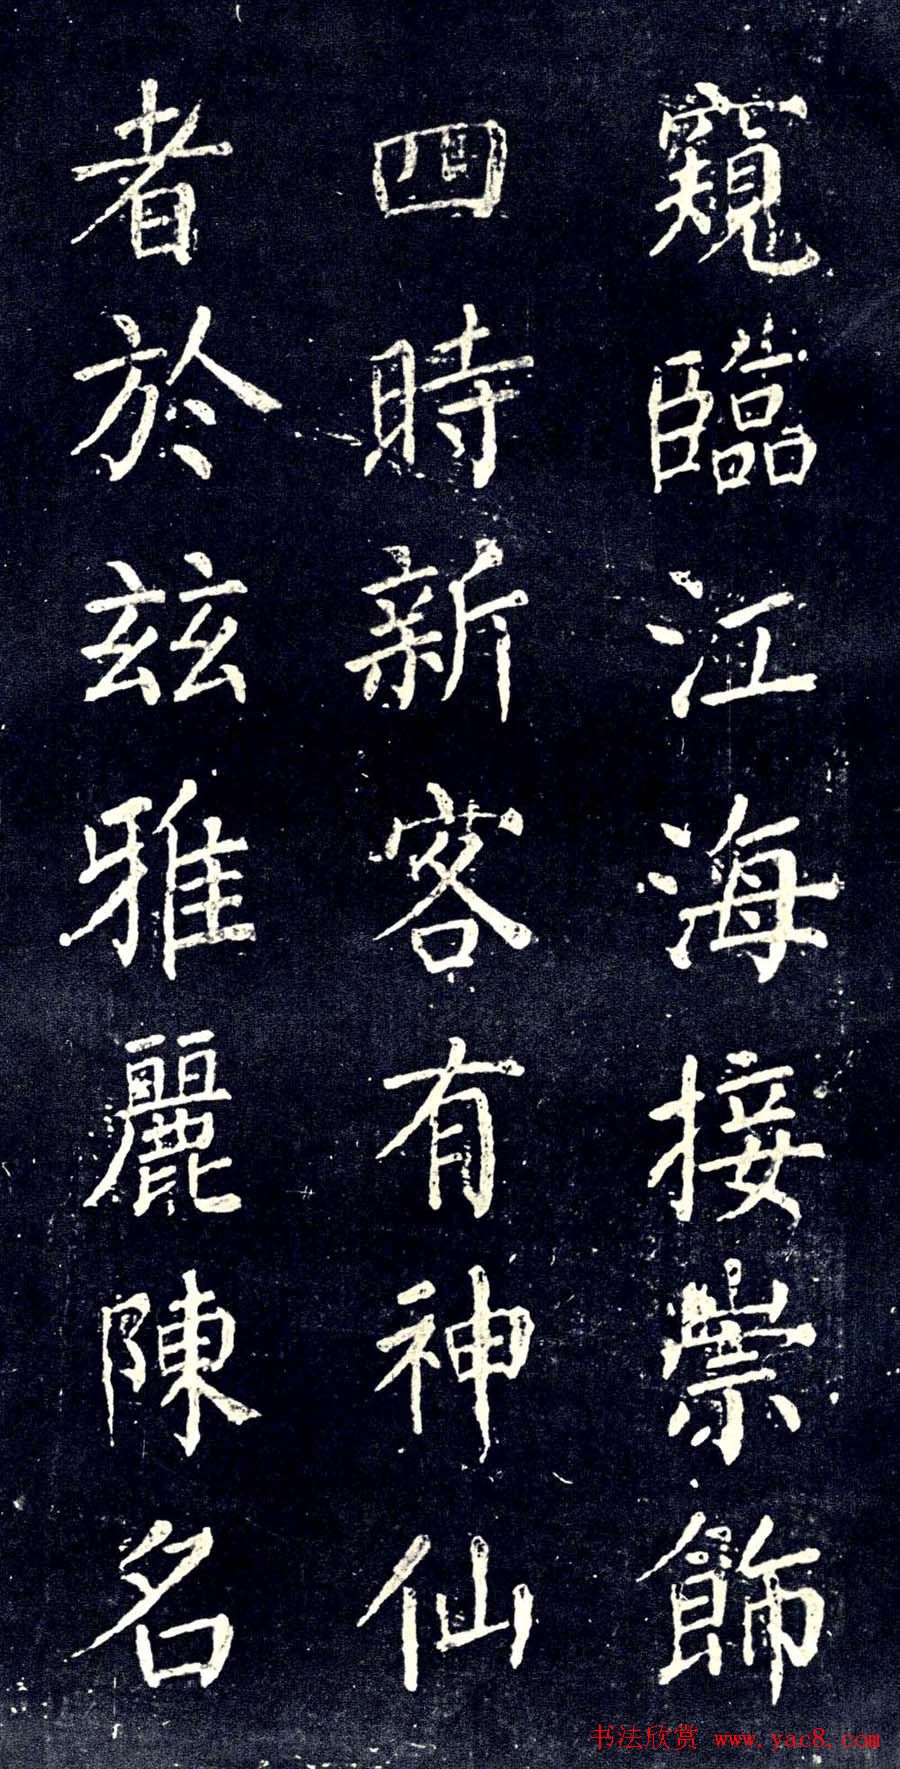 窺臨江海接崇飾
四時新客有神仙
者於兹雅麗陳名
书法欣赏 www.yac8.com